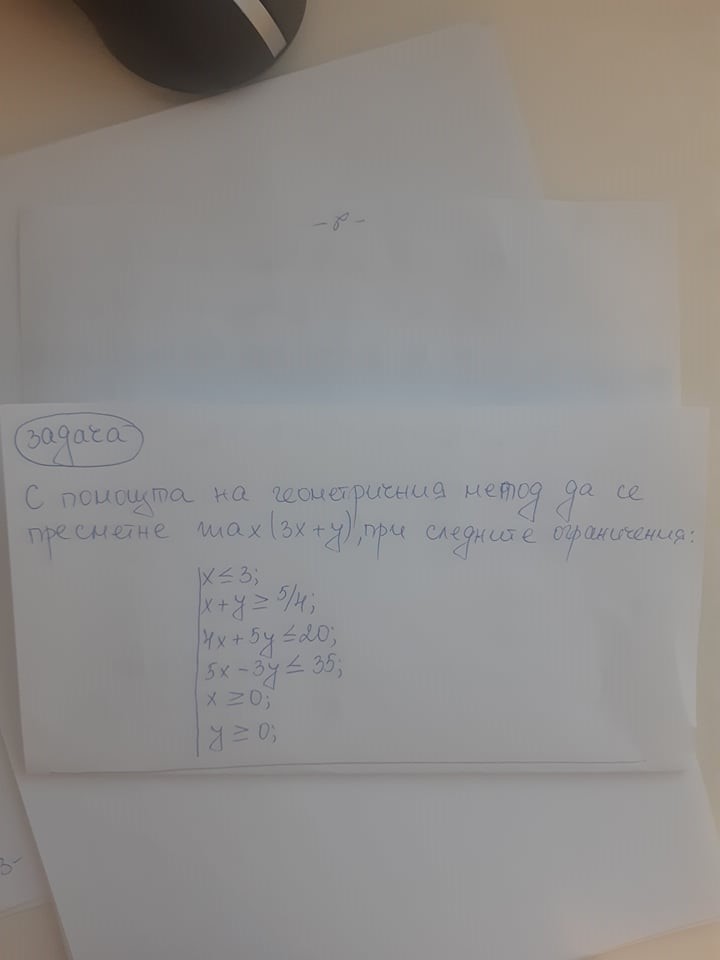 - 8 -
задача
С помощта на геометричния метод да се
пресметне max(3x+y), при следните ограничения:
x ≤ 3;
x+y ≥ 5/4;
4x+5y ≤ 20;
5x-3y ≤ 35;
x ≥ 0;
y ≥ 0;